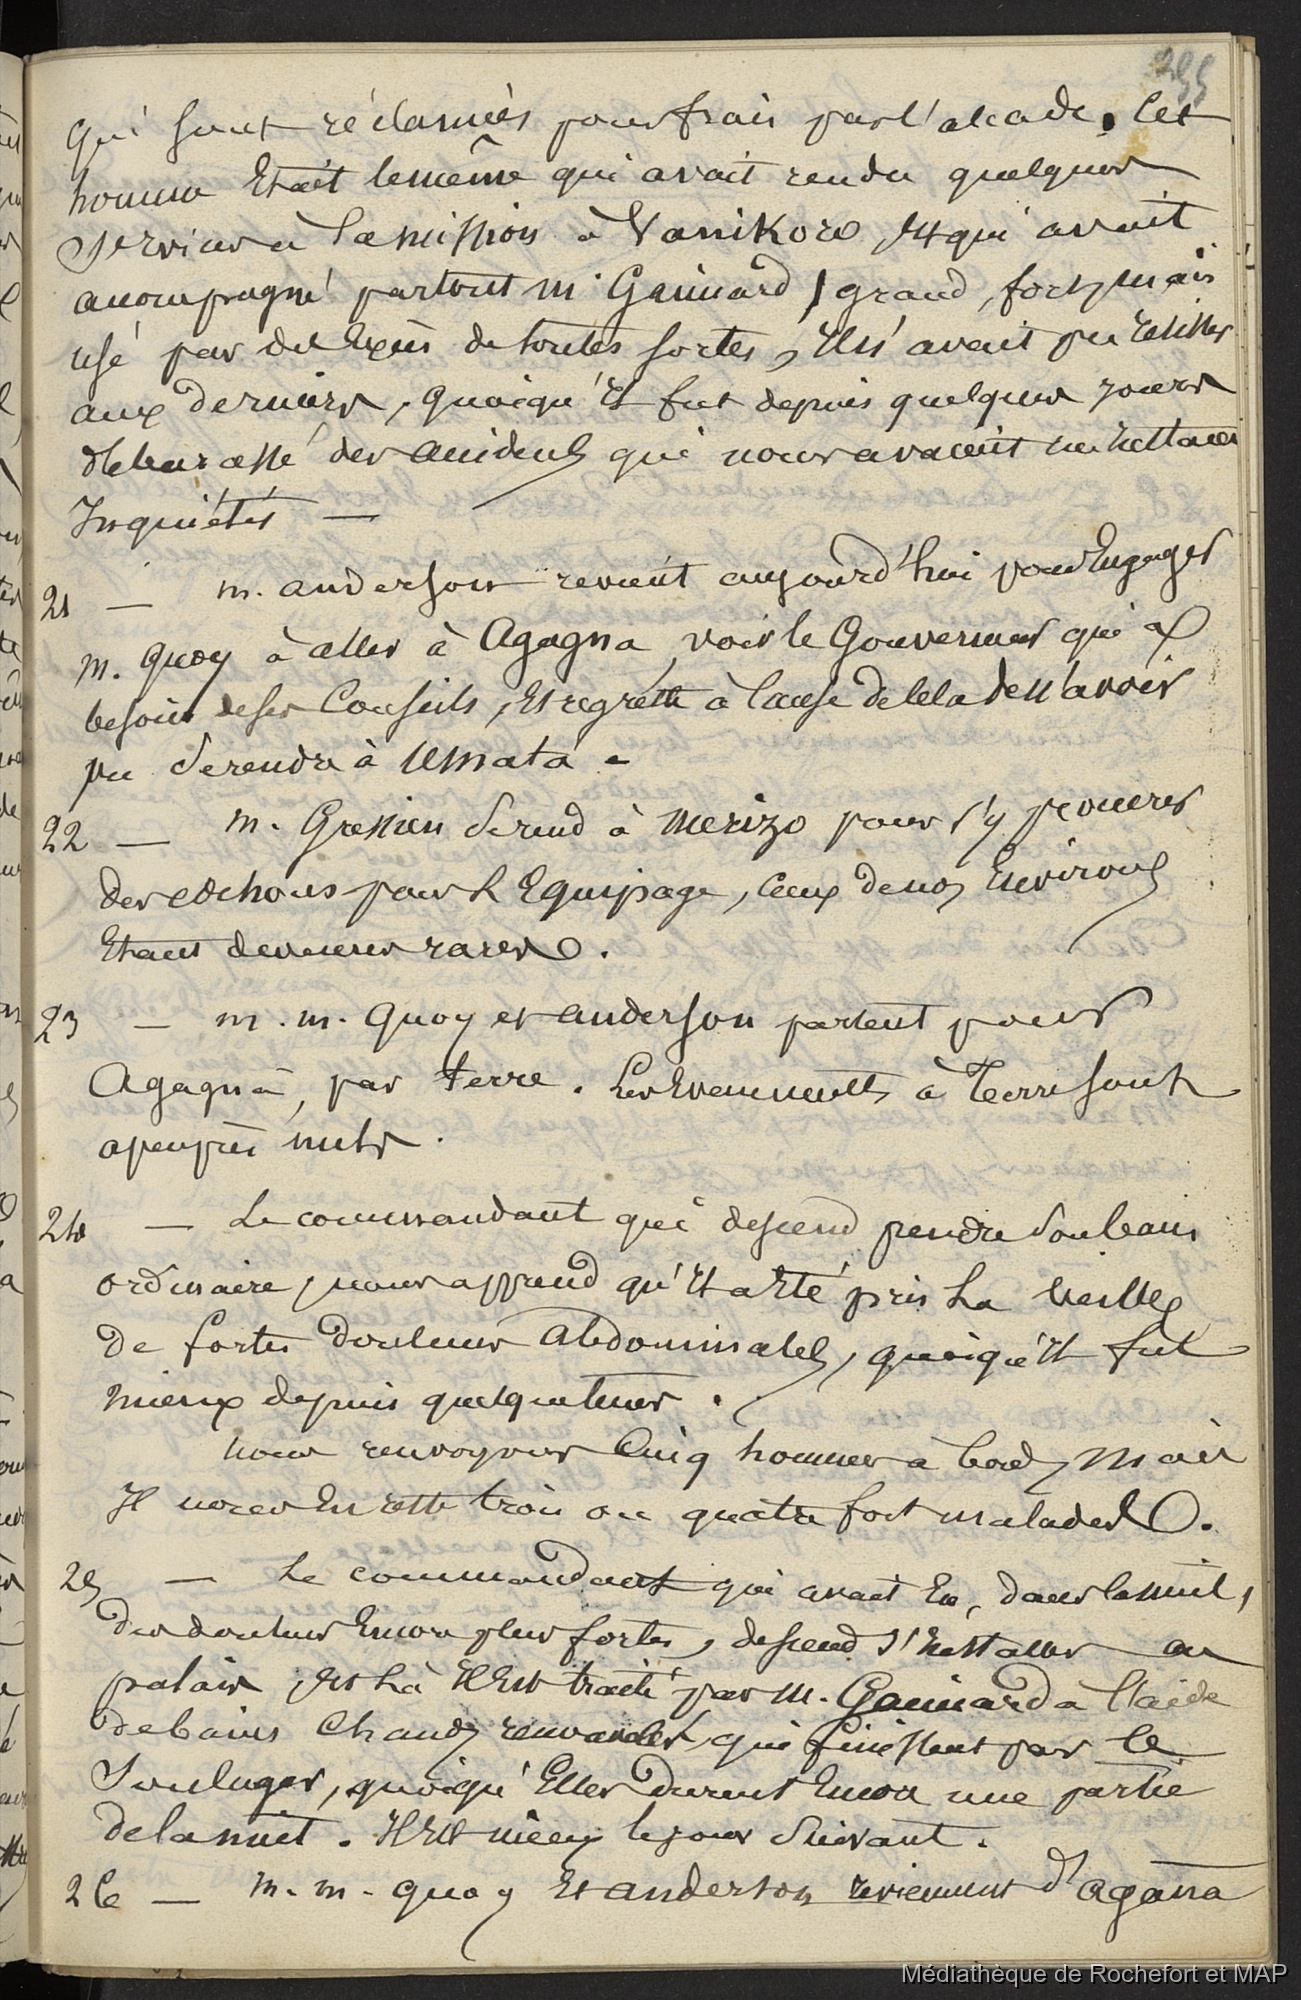 255
qui sont réclamées pour frais par l'alcade. Cet
homme Etait le même qui avait rendu quelques
services à la mission à Vanikoro, Et qui avait
accompagné partout m. Gaimard, grand, fort, mais
usé par des Excès de toutes sortes, Il n'avait pu résister
aux derniers, quoiqu'Il fut depuis quelques jours
débarassé des accidents qui nous avaient un Instant
Inquiétés —
21 — m. anderson revient aujourd'hui pour Engager
m. Quoy à aller à Agagna, voir le Gouverneur qui a
besoin de ses Conseils, Et regrette à Cause de Cela de N'avoir
pu Se rendre à Umata.
22 — m. Gressien Se rend à Merizo pour s'y procurer
des cochons pour L'Equipage, Ceux de nos Environs
Etant devenus rares.
23 — m. m. Quoy et anderson partent pour
Agagna, par terre. Les Evenements à Terre sont
apeuprès nuls.
24 — Le commandant qui descend prendre Son bain
ordinaire, nous apprend qu'Il a Eté pris La Veille
de fortes Douleurs Abdominales, quoiqu'Il fut
mieux depuis quelque tems.
nous renvoyons Cinq hommes à bord, Mais
Il nous En reste trois ou quatre fort malades.
25 — Le commandant qui avait Eu, dans la nuit,
des douleurs Encore plus fortes, descend s'Installer au
palais, Et Là Il Est traité par M. Gaimard à l'aide
de bains Chauds, qui finissent par le
Soulager, quoiqu'Elles Durent Encore une partie
de la nuit. Il Est mieux le jour Suivant.
26 — m. m. quoy Et anderson reviennent d'agana
Médiathèque de Rochefort et MAP